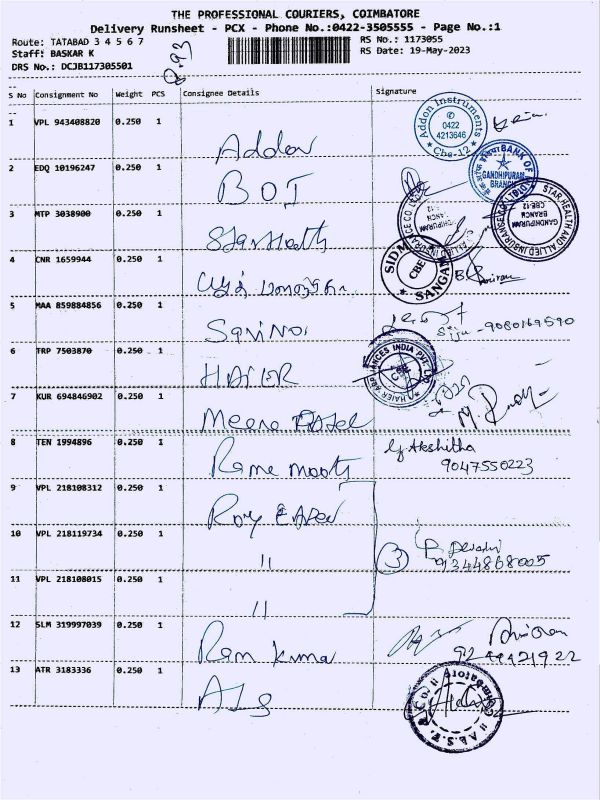 THE PROFESSIONAL COURIERS, COIMBATORE
Delivery Runsheet - PCX - Phone No.:0422-3505555 - Page No.:1
Route: TATABAD 3 4 5 6 7 RS No.: 1173055
Staff: BASKAR K RS Date: 19-May-2023
DRS No.: DCJB117305501
S No Consignment No Weight PCS Consignee Details Signature
1 VPL 943408820 0.250 1 Addon
Addon Instruments 0422 4213646 Cbe-12
2 EDQ 10196247 0.250 1 BOI
BANK OF GANDHIPURAM BRANCH
3 MTP 3038900 0.250 1
STAR HEALTH AND ALLIED INSURANCE CO LTD GANDHIPURAM BRANCH CBE-12
4 CNR 1659944 0.250 1
CBE SANGAM
5 MAA 859884856 0.250 1
9080169590
6 TRP 7503870 0.250 1 HAIER
HAIER APPLIANCES INDIA PVT LTD CBE
7 KUR 694846902 0.250 1 Meena Patel
8 TEN 1994896 0.250 1 Rama moorthy
Akshitha
9047550223
9 VPL 218108312 0.250 1 Roy
10 VPL 218119734 0.250 1 " 3
9344868005
11 VPL 218108015 0.250 1 "
12 SLM 319997039 0.250 1 Ram kuma
13 ATR 3183336 0.250 1